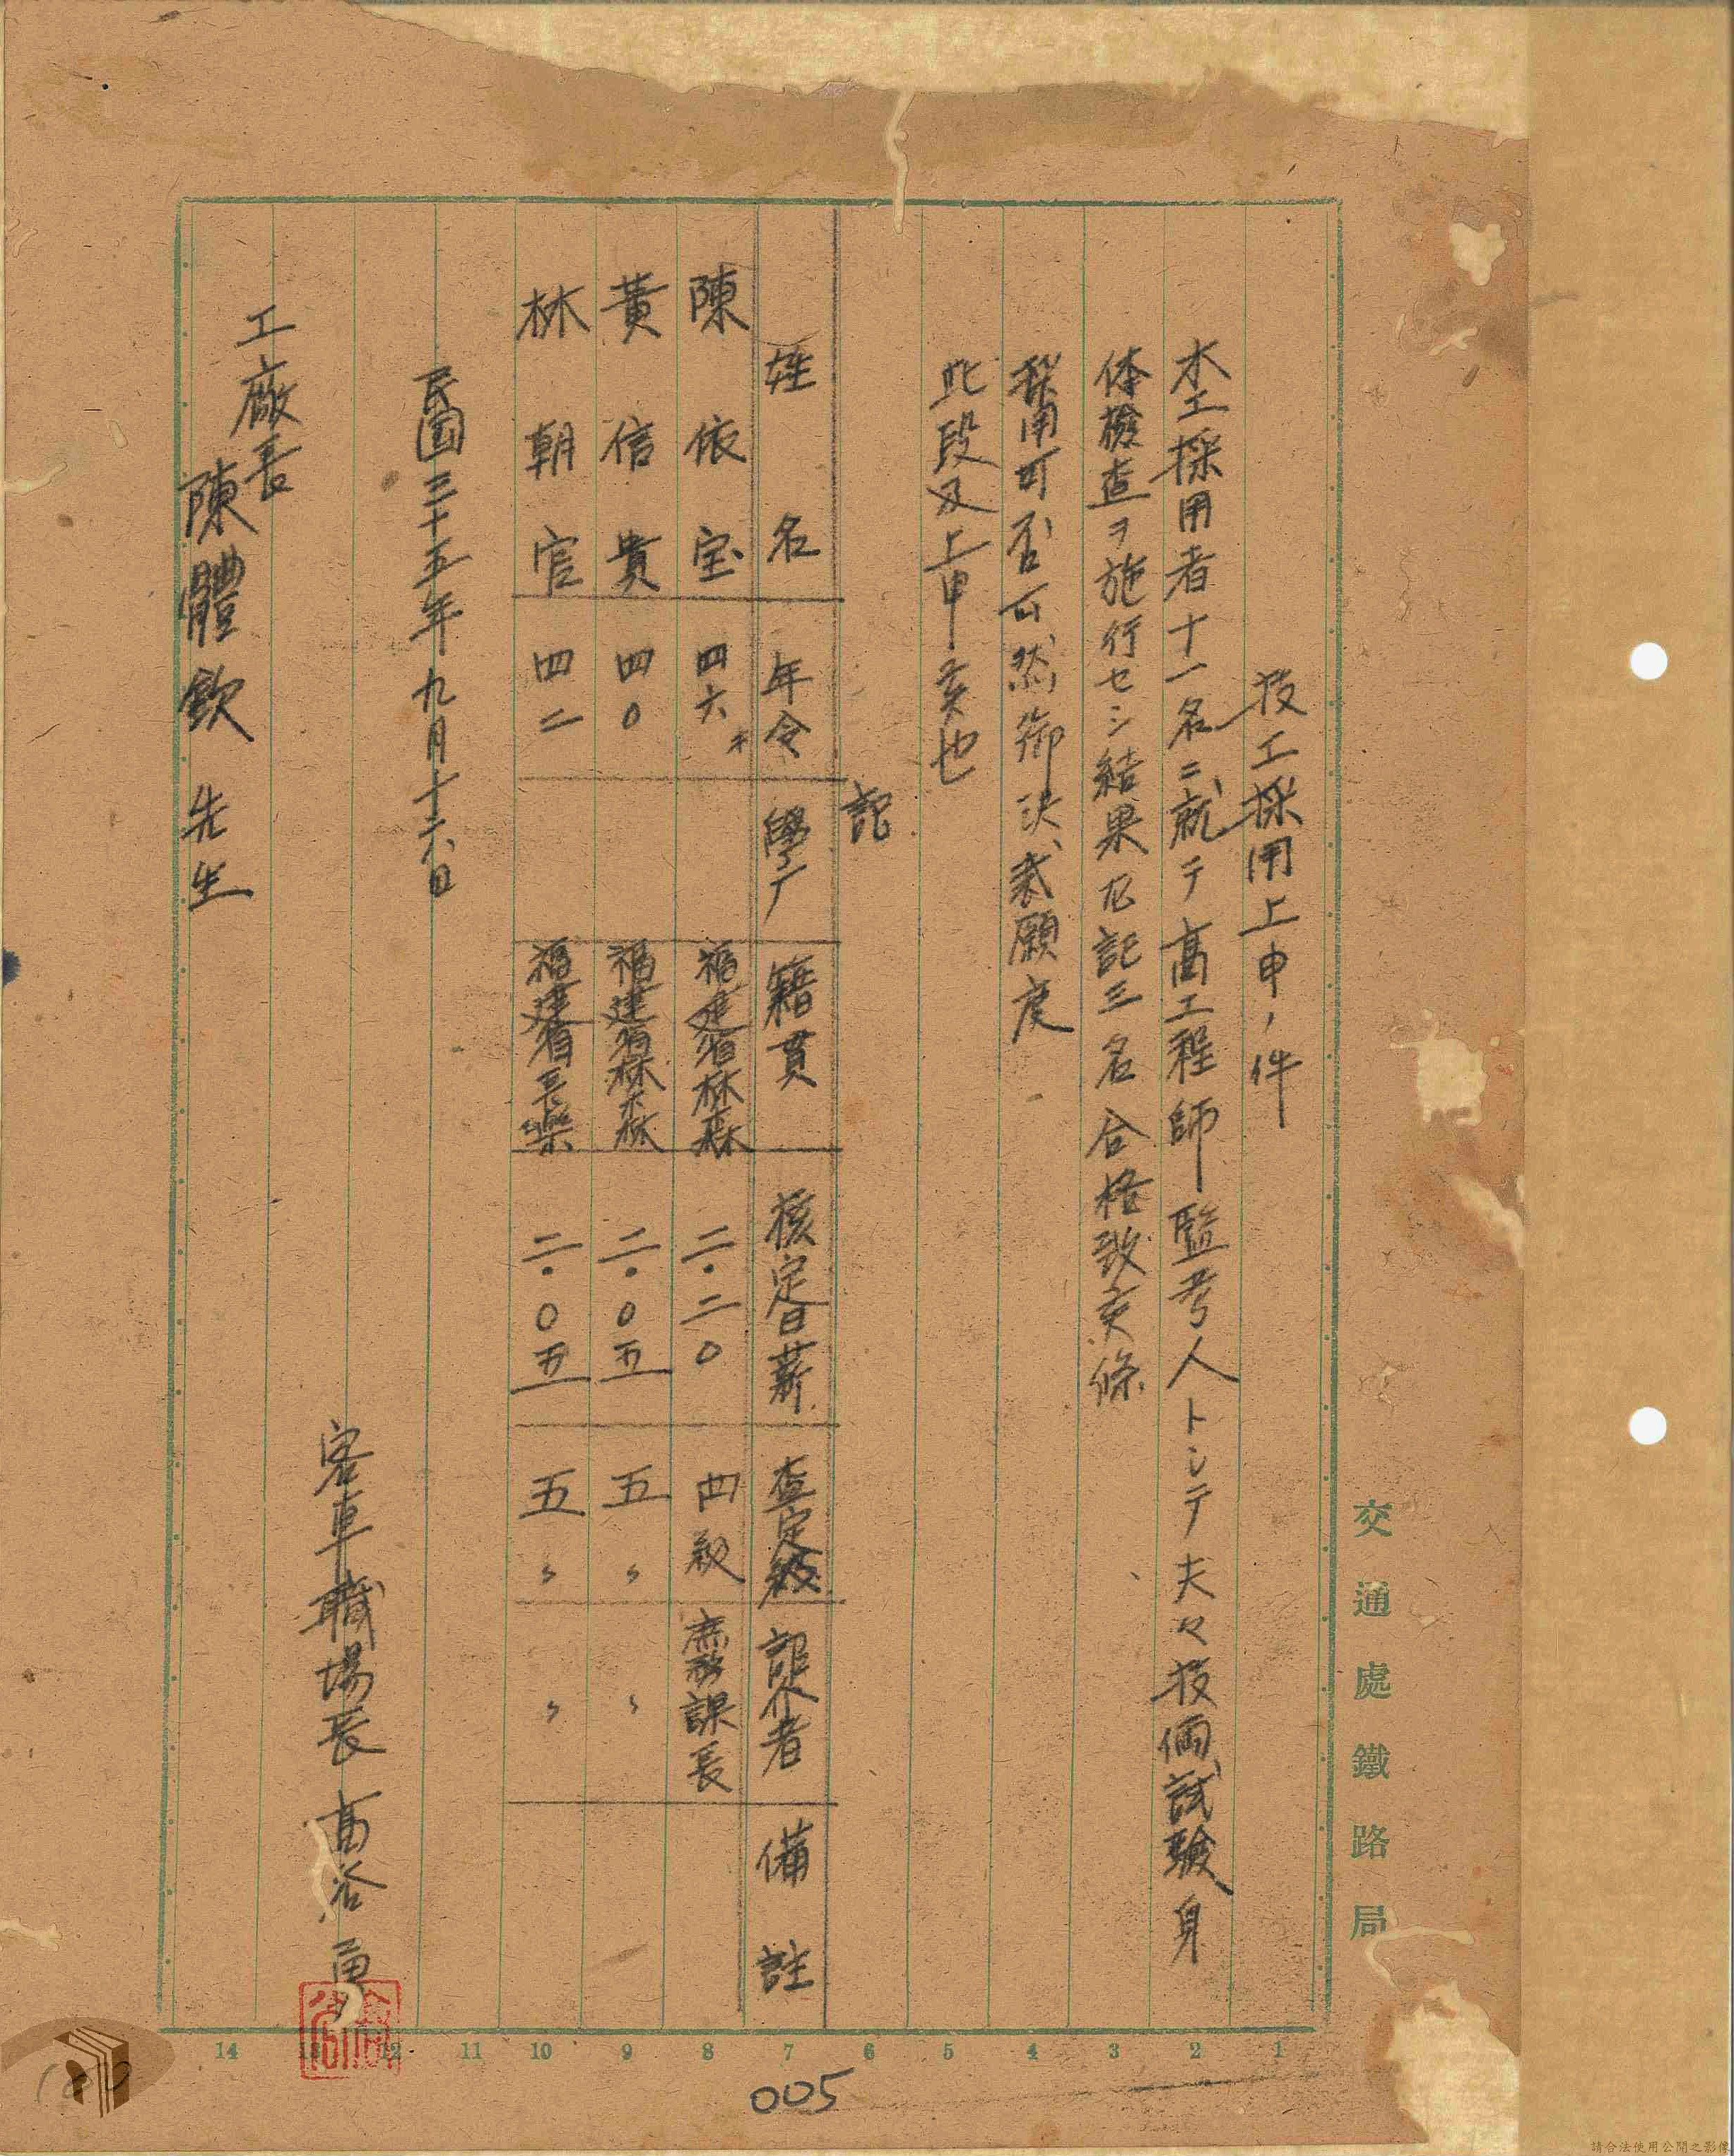 交通處鐵路局
技工採用上申ノ件
木工採用者十一名ニ就テ高工程師監考人トシテ夫々技倆試驗身
体檢查ヲ施行セシ結果左記三名合格致候條
採用可否可然御決裁願度
此段及上申候也
記
姓名 年令 學力 籍貫 核定日薪 查定級 紹介者 備註
陳依宝 四六才 福建省林森 二.二〇 四級 庶務課長
黃信貴 四〇 福建省林森 二.〇五 五〃 〃
林朝官 四二 福建省長樂 二.〇五 五〃 〃
民國三十五年九月十六日
客車職場長 高谷勇
工廠長
陳體欽 先生
1 2 3 4 5 6 7 8 9 10 11 12 13 14
005
請合法使用公開之影像